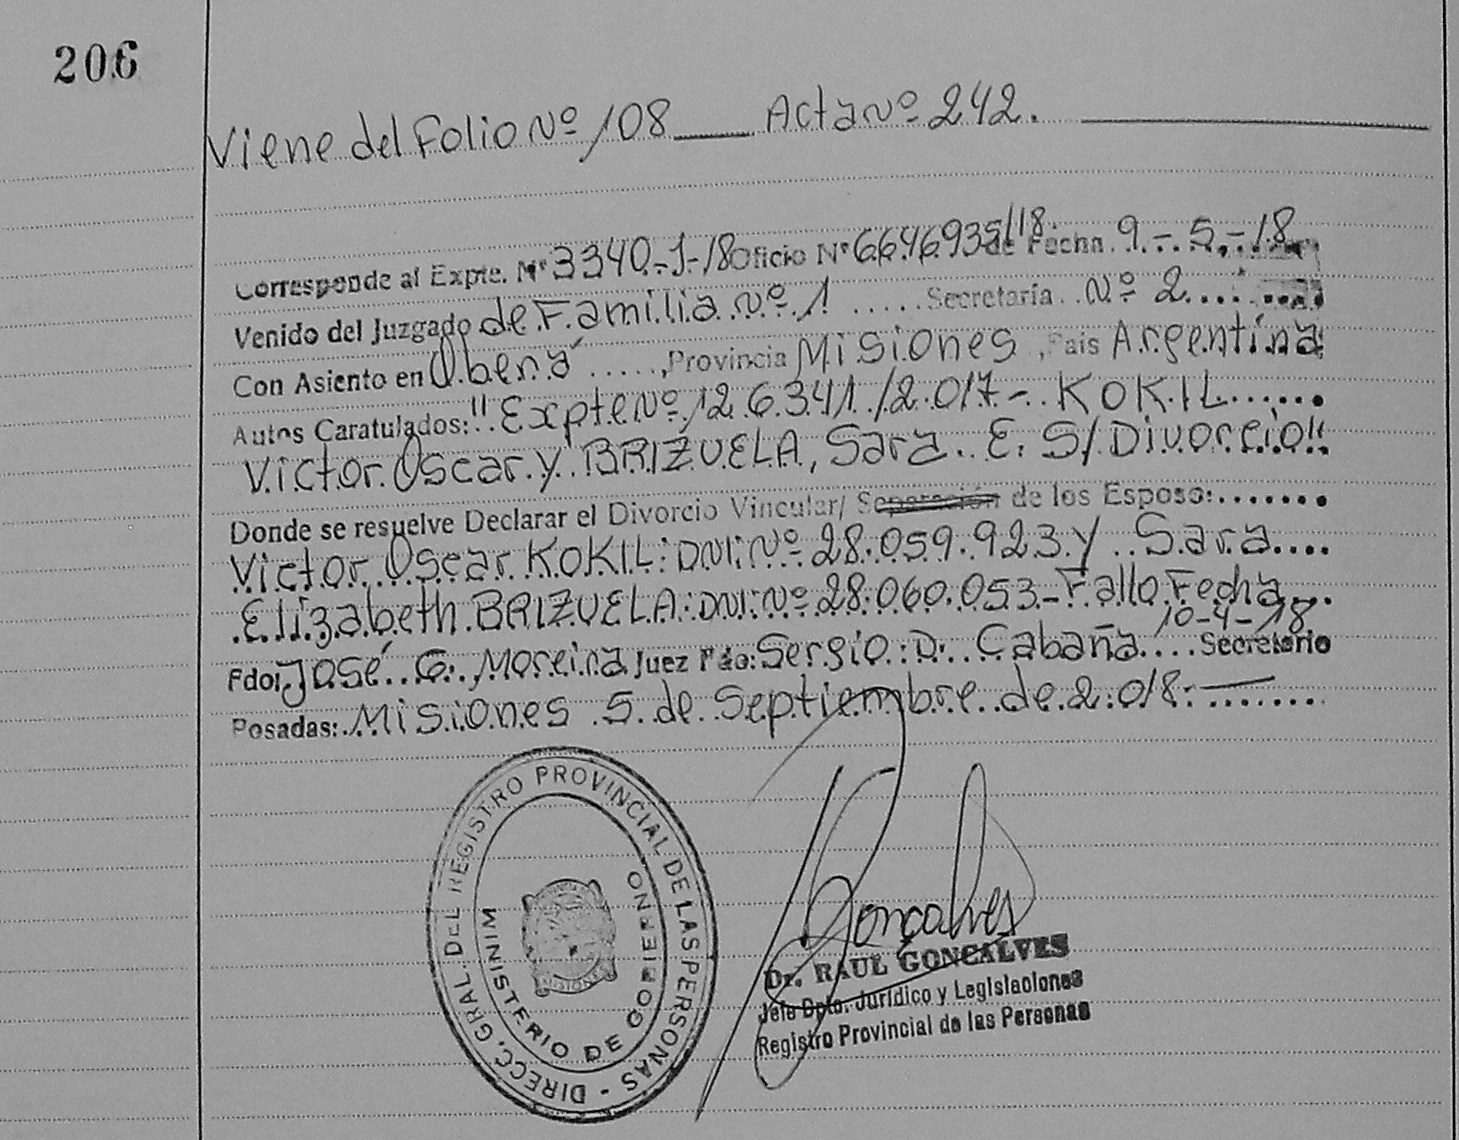 206
Viene del Folio Nº 108 Acta Nº 242.
Corresponde al Expte. Nº 3340-J-18 Oficio Nº 6646935/18 de Fecha 9.-5.-18
Venido del Juzgado de Familia Nº 1 ..... Secretaría .. Nº 2....
Con Asiento en Oberá ....., Provincia Misiones, País Argentina
Autos Caratulados: "Expte Nº 126.341/2.017- KOKIL......
Victor Oscar y BRIZUELA, Sara E. S/Divorcio"
Donde se resuelve Declarar el Divorcio Vincular/ Separación de los Esposo:.......
Victor Oscar KOKIL: DNI: Nº 28.059.923 y Sara....
Elizabeth BRIZUELA: DNI: Nº 28.060.053- Fallo Fecha...
10-4-18
Fdo: José G. Moreira Juez Fdo: Sergio D. Cabaña .... Secretario
Posadas: Misiones 5 de Septiembre de 2.018.-
DIRECC. GRAL. DEL REGISTRO PROVINCIAL DE LAS PERSONAS -
MINISTERIO DE GOBIERNO
MISIONES
Gonçalves
Dr. RAUL GONCALVES
Jefe Dpto. Jurídico y Legislaciones
Registro Provincial de las Personas